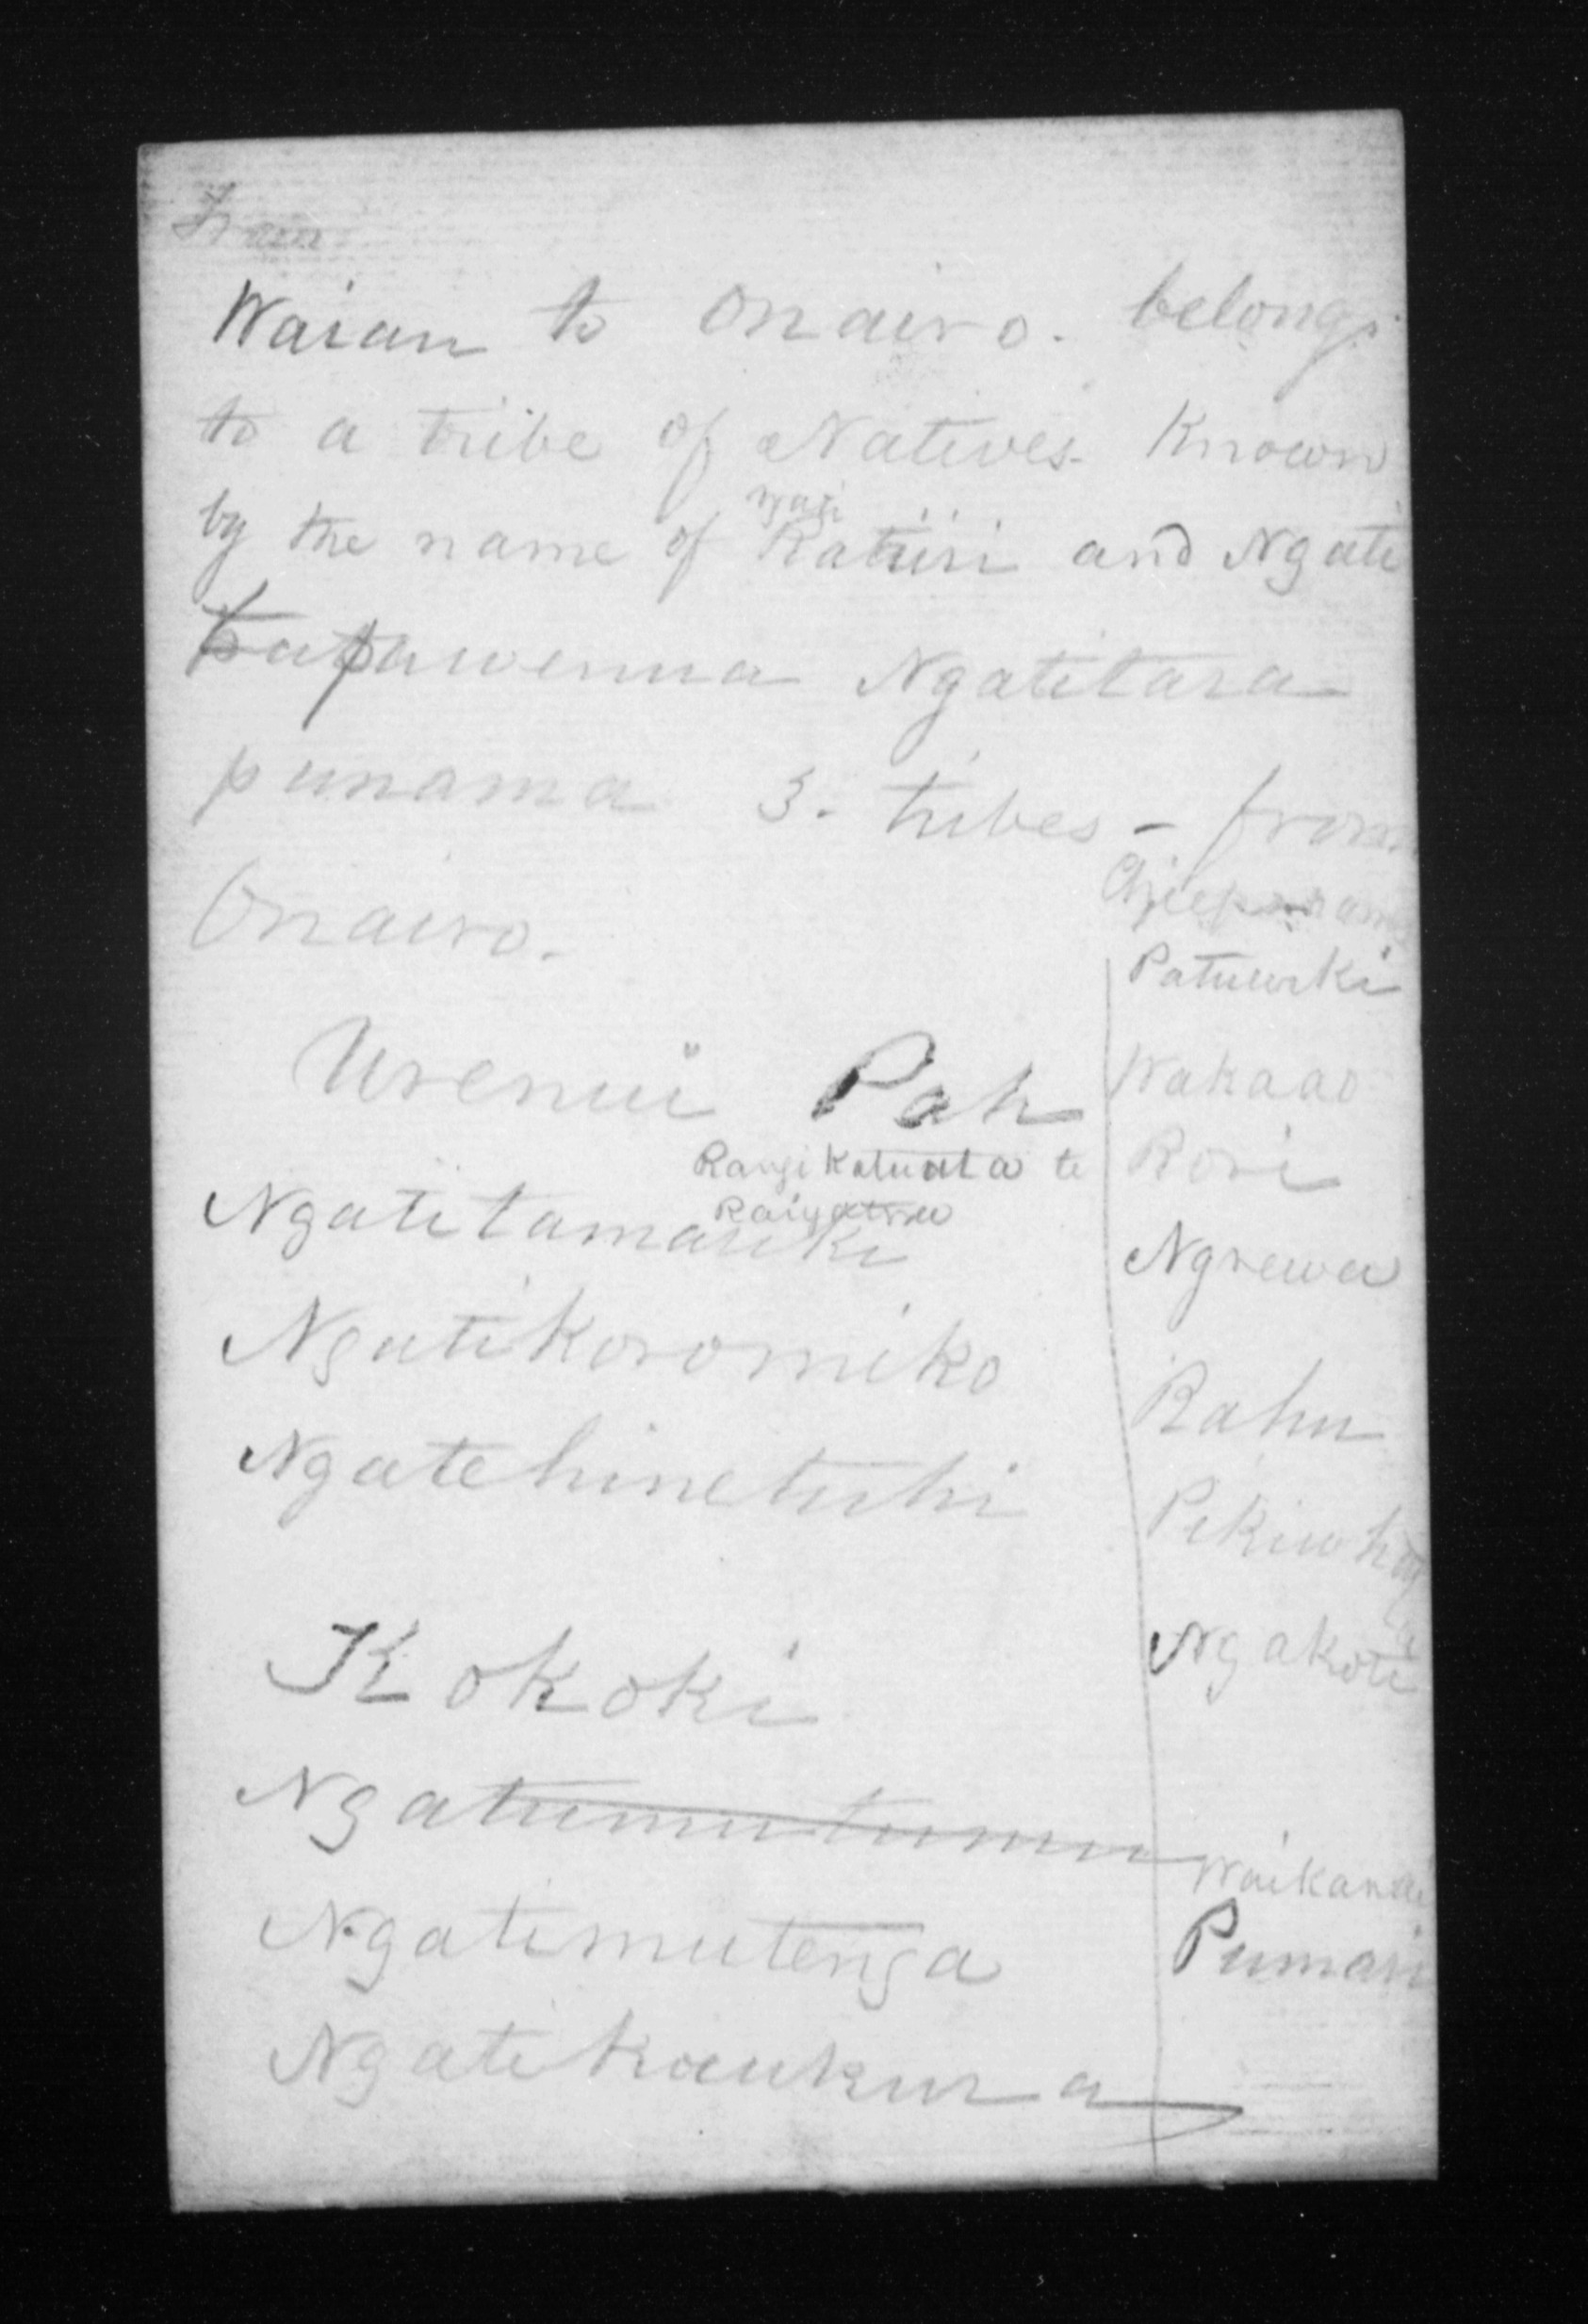 From
Waiau to Onairo. belongs
to a tribe of Natives. Known
by the name of ngati Ratiiri and Ngati
tupawenua Ngatitara
punama 3. tribes - from
Onairo.
Urenui Pah
Rangi Katuata te
Raiyatru
Ngatitamariki
Ngatikoromiko
Ngatehinetuhi
Kokoki
Ngatumutumu
Ngatimutenga
Ngatikaukura
Patuwiki
Wakaao
Rori
Ngrewa
Rahu
Pikiwh
Ngakoti
Waikanae
Pumari